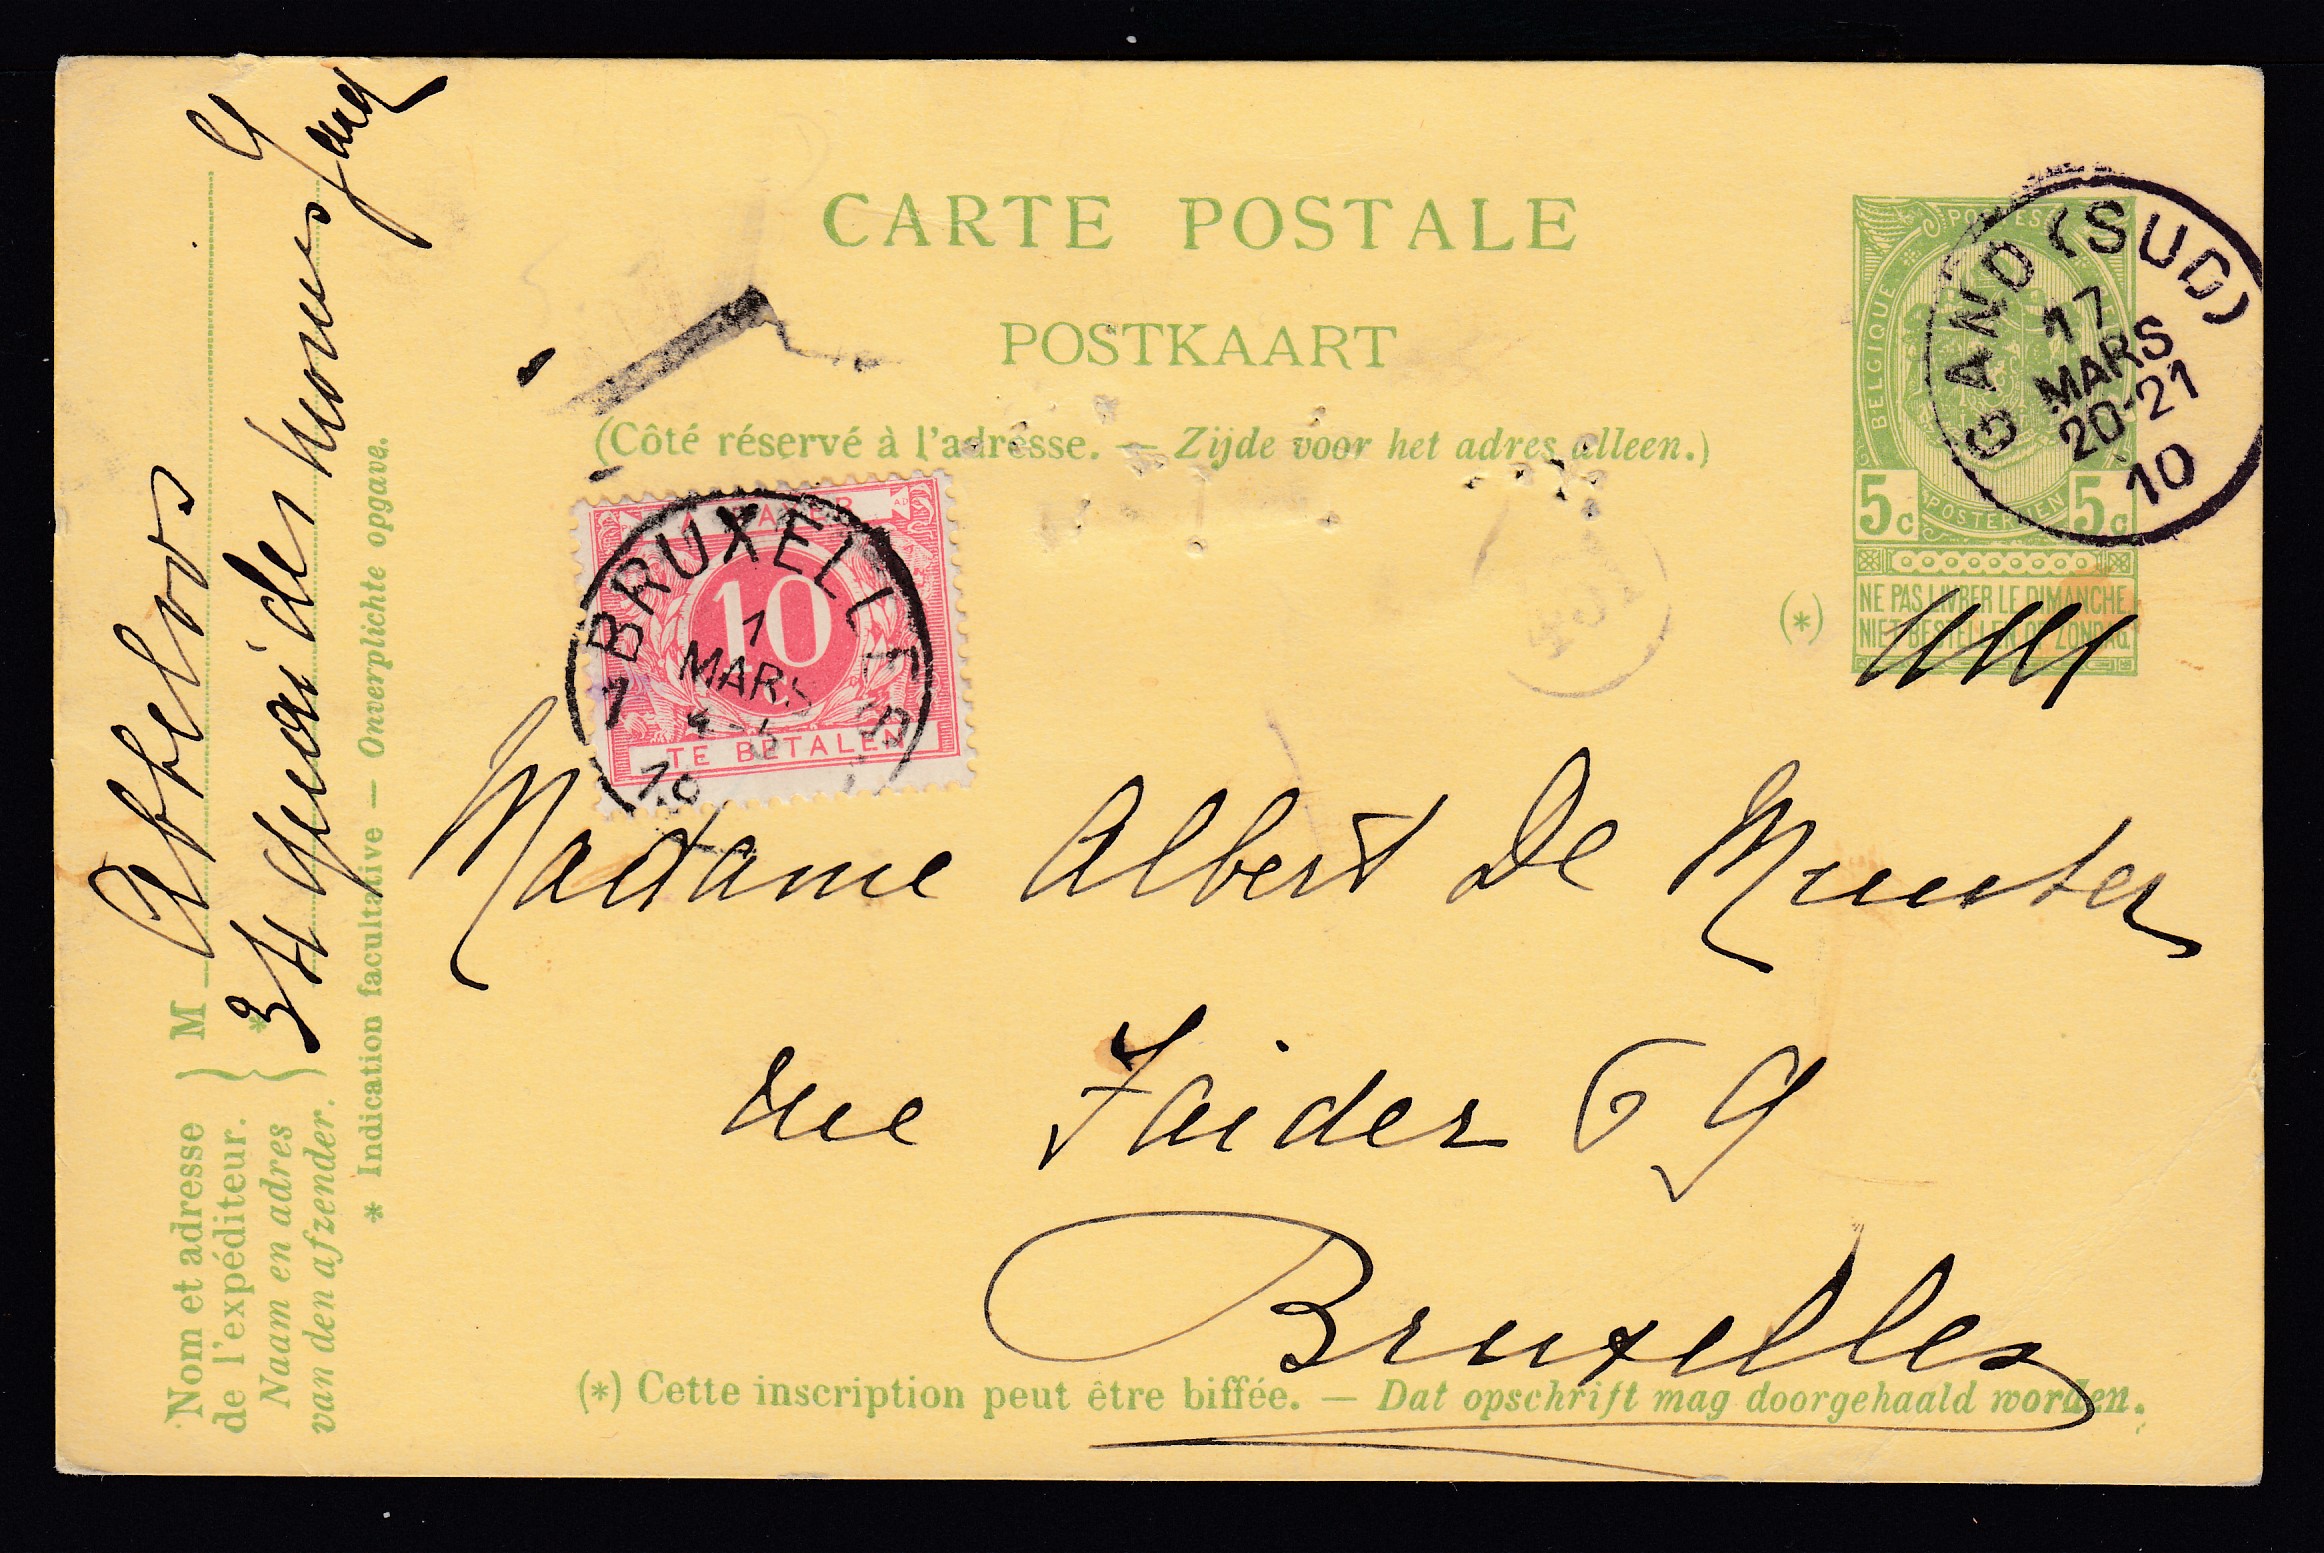 CARTE POSTALE
POSTKAART
(Côté réservé à l'adresse. — Zijde voor het adres alleen.)
POSTES
BELGIQUE
POSTERIJEN
5c 5c
(*) NE PAS LIVRER LE DIMANCHE.
NIET BESTELLEN OP ZONDAG.
GAND (SUD)
17
MARS
20-21
10
A PAYER
10
TE BETALEN
BRUXELLES
1
1
MARS
4-5
10
Madame Albert De Munter
rue Faider 69
Bruxelles
(*) Cette inscription peut être biffée. — Dat opschrift mag doorgehaald worden.
Nom et adresse
de l'expéditeur.
Naam en adres
van den afzender.
M Abbeloos
* 34 quai des
* Indication facultative — Onverplichte opgave.